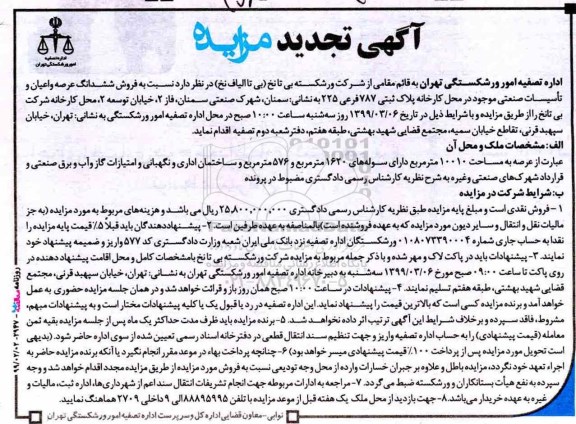 آگهی تجدید مزایده
اداره تصفیه
امور ورشکستگی تهران
اداره تصفیه امور ورشکستگی تهران به قائم مقامی از شرکت ورشکسته بی تا نخ (بی تا الیاف نخ) در نظر دارد نسبت به فروش ششدانگ عرصه واعیان و
تأسیسات صنعتی موجود در محل کارخانه پلاک ثبتی ۷۸۷ فرعی ۲۲۵ به نشانی: سمنان، شهرک صنعتی سمنان، فاز ۲، خیابان توسعه ۲، محل کارخانه شرکت
بی تا نخ را از طریق مزایده و با شرایط ذیل در تاریخ ۱۳۹۹/۰۳/۰۶ روز سه شنبه ساعت ۱۰:۰۰ صبح در محل اداره تصفیه امور ورشکستگی به نشانی: تهران، خیابان
سپهبد قرنی، تقاطع خیابان سمیه، مجتمع قضایی شهید بهشتی، طبقه هفتم، دفتر شعبه دوم تصفیه اقدام نماید.
الف: مشخصات ملک و محل آن
عبارت از عرصه به مساحت ۱۰۰۱۰ مترمربع دارای سوله‌های ۱۶۳۰ مترمربع و ۵۷۶ مترمربع و ساختمان اداری و نگهبانی و امتیازات گاز وآب و برق صنعتی و
قرارداد شهرک‌های صنعتی وغیره به شرح نظریه کارشناس رسمی دادگستری مضبوط در پرونده
ب: شرایط شرکت در مزایده
۱- فروش نقدی است و مبلغ پایه مزایده طبق نظریه کارشناس رسمی دادگستری ۲۵,۸۰۰,۰۰۰,۰۰۰ ریال می باشد و هزینه‌های مربوط به مورد مزایده (به جز
مالیات نقل و انتقال و سایر دیون مورد مزایده که به عهده فروشنده است) بالمناصفه به عهده طرفین است ۲- پیشنهاددهندگان باید قبلا ۵٪ قیمت پایه مزایده را
نقدا به حساب جاری شماره ۰۱۰۸۰۷۳۳۹۰۰۴ ورشکستگان اداره تصفیه نزد بانک ملی ایران شعبه وزارت دادگستری کد ۵۷۷ واریز و ضمیمه پیشنهاد خود
نمایند. ۳- پیشنهادات باید در پاکت لاک و مهر شده و با ذکر جمله مربوط به مزایده شرکت ورشکسته بی تا نخ با مشخصات کامل و محل اقامت پیشنهاد دهنده در
روی پاکت تا ساعت ۰۹:۰۰ صبح مورخ ۱۳۹۹/۰۳/۰۶ سه‌شنبه به دبیرخانه اداره تصفیه امور ورشکستگی تهران به نشانی: تهران، خیابان سپهبد قرنی، مجتمع
قضایی شهید بهشتی، طبقه هفتم تسلیم نمایند. ۴- پیشنهادات در ساعت ۱۰:۰۰ صبح همان روز باز و قرائت خواهد شد و در همان جلسه مزایده حضوری به عمل
خواهد آمد و برنده مزایده کسی است که بالاترین قیمت را پیشنهاد نماید. این اداره تصفیه در رد یا قبول یک یا کلیه پیشنهادات مختار است و به پیشنهادات مبهم،
مشروط، فاقد سپرده و برخلاف شرایط این آگهی ترتیب اثر داده نخواهد شد. ۵- برنده مزایده باید ظرف مدت حداکثر یک ماه پس از جلسه مزایده بقیه ثمن
معامله (قیمت پیشنهادی) را به حساب اداره تصفیه واریز و جهت تنظیم سند انتقال قطعی در دفترخانه اسناد رسمی تعیین شده از سوی اداره حاضر شود. (بدیهی
است تحویل مورد مزایده پس از پرداخت ۱۰۰٪ قیمت پیشنهادی میسر خواهد بود) ۶- چنانچه پرداخت بهاء در موعد مقرر انجام نگیرد یا آنکه برنده مزایده حاضر به
اجراء تعهد خود نگردد، مزایده باطل و علاوه بر جبران خسارات وارده از محل وجه تودیعی نسبت به فروش مورد مزایده از طریق مزایده مجدد اقدام خواهد شد و وجه
سپرده به نفع هیأت بستانکاران و ورشکسته ضبط می‌گردد. ۷- مراجعه به ادارات مربوطه جهت انجام تشریفات انتقال سند اعم از شهرداری‌ها، اداره ثبت، مالیات و
غیره به عهده خریدار می‌باشد. ۸- جهت بازدید از محل ملک یک هفته قبل از موعد مزایده با تلفن ۸۸۸۹۵۹۹۵ الی ۹ داخلی ۲۷۰۹ هماهنگ نمایید.
نوابی- معاون قضایی اداره کل و سرپرست اداره تصفیه امور ورشکستگی تهران